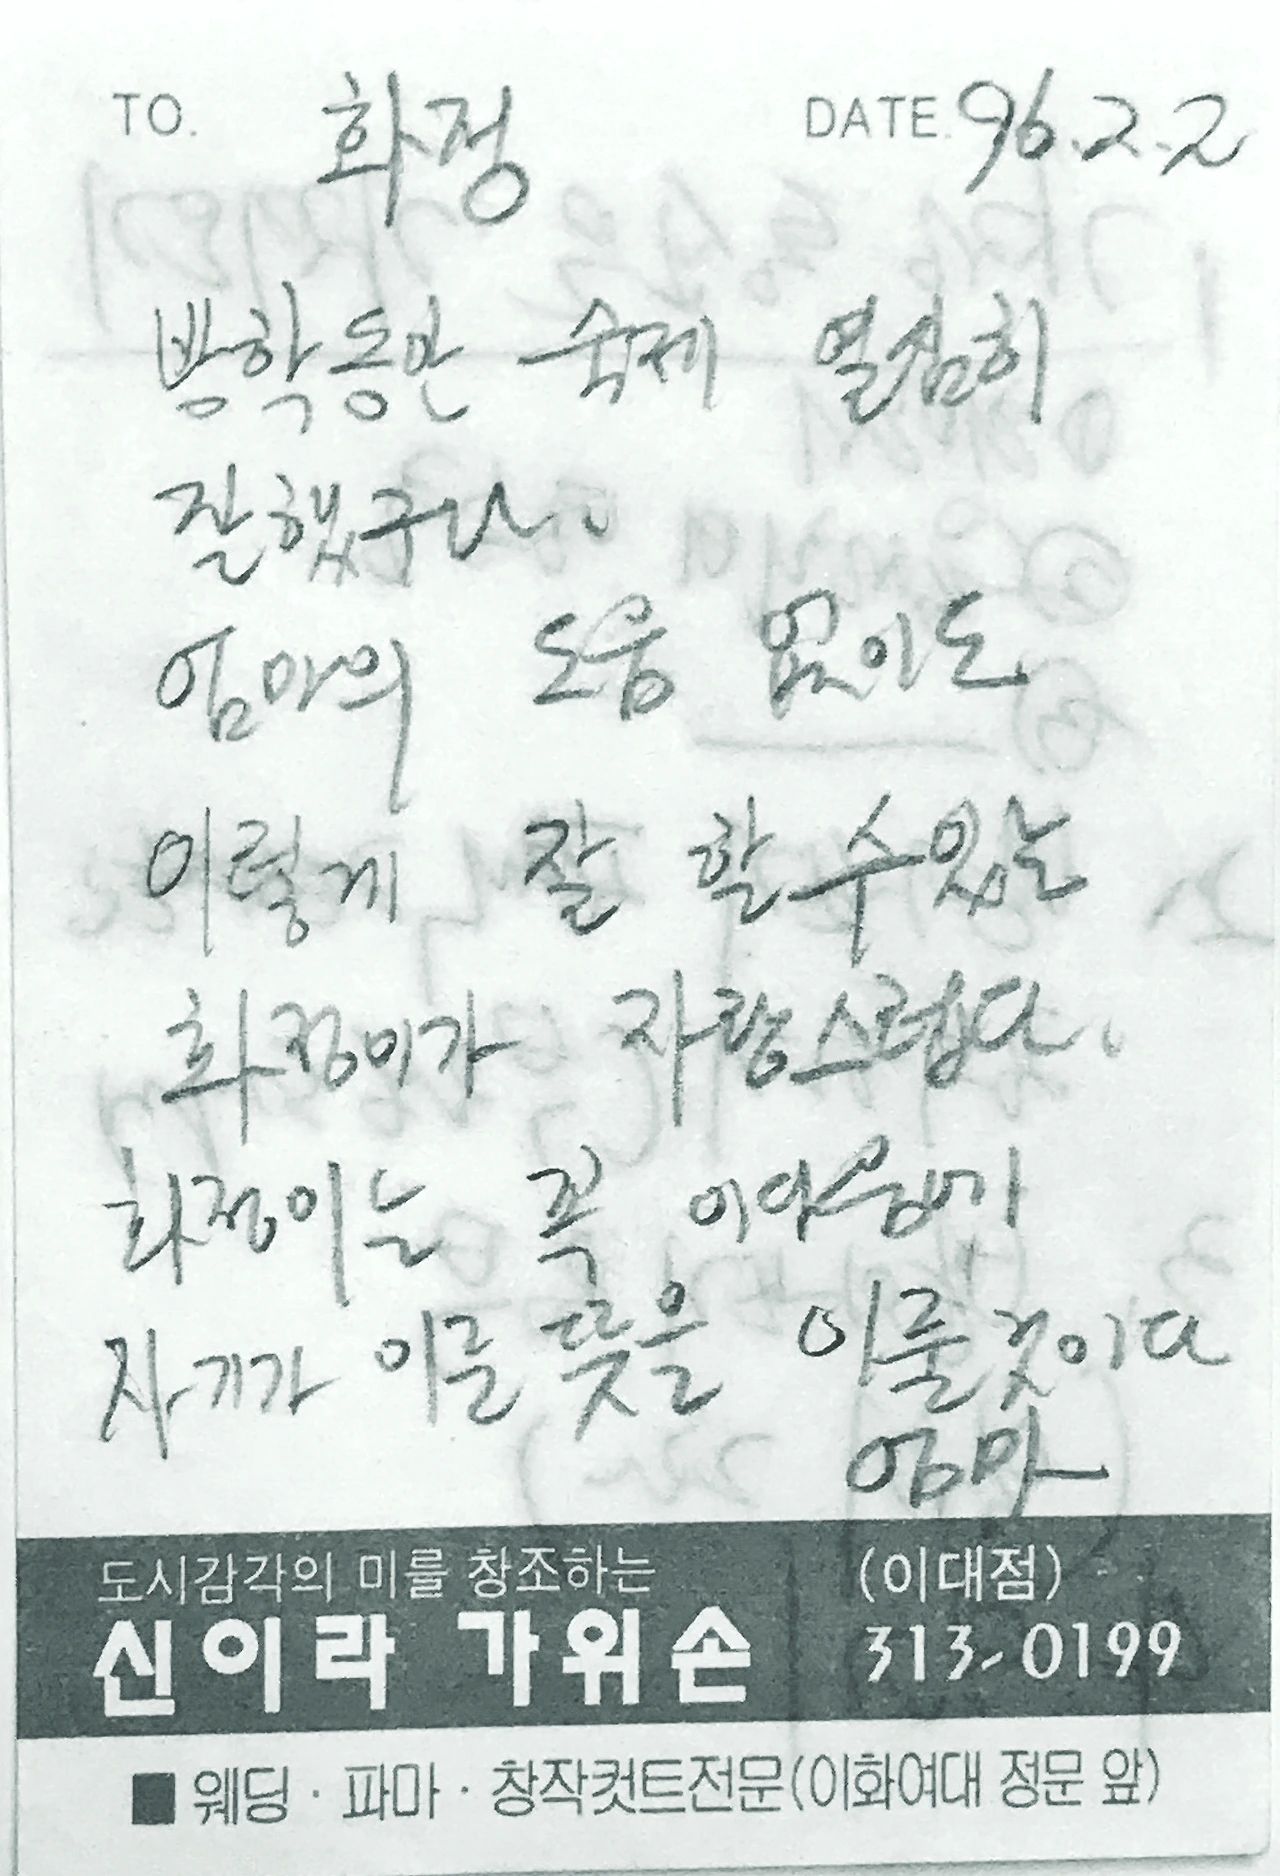 TO. 화정 DATE. 96.2.2
방학동안 숙제 열심히
잘했구나.
엄마의 도움 없이도
이렇게 잘 할 수 있는
화정이가 자랑스럽다.
화정이는 꼭
자기가 이룰 뜻을 이룰것이다
엄마
도시감각의 미를 창조하는 (이대점)
신이라 가위손 313-0199
■ 웨딩 · 파마 · 창작컷트전문(이화여대 정문 앞)